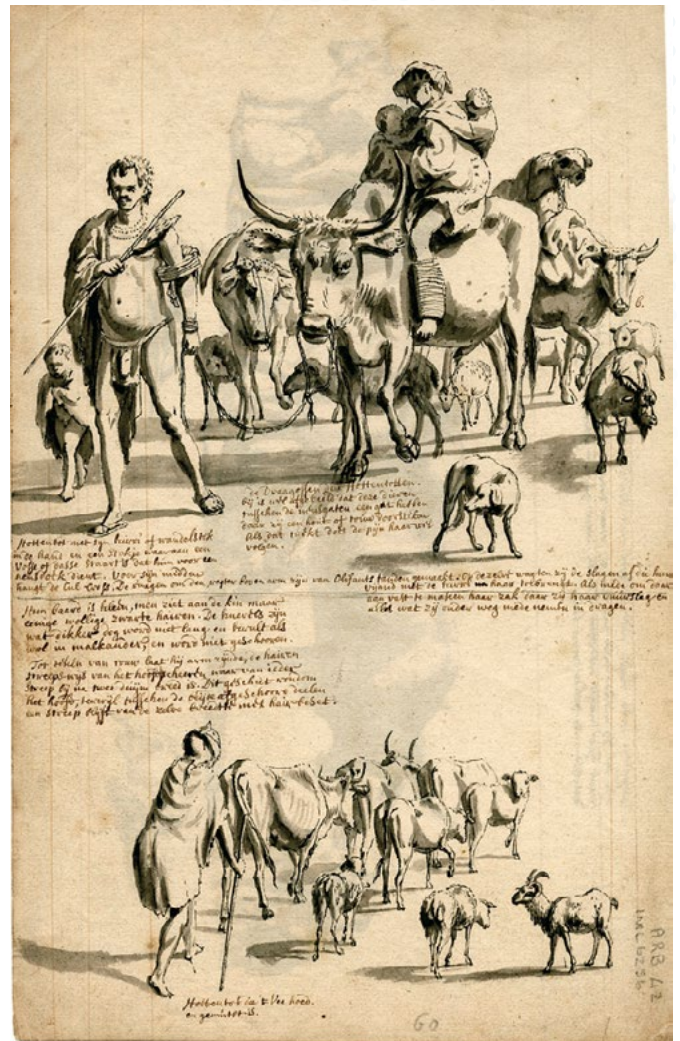 de Draagossen der Hottentotten.
bij is wel afgebeeld dat deze dieren
tusschen de neusgaten een gat hebben
daar zij een hout of touw door steken
Als dat trekt doet de pijn haar
volgen.
Hottentot met syn of wandelstok
in de hand en een Stokje waar aan een
Vosse of staart is dat hem voor een
neusdoek dient. Voor sijn midden
hangt de Cul Cross. De ringen om den arm zijn van Olifants tanden gemaakt. Op dezelve zij de slagen of die hun
vyand met de haar toebrengt. Als mede om daar
aan vast te maken haar zak daar zij haar vuurslag en
alles wat zij onder weg mede nemen in dragen.
Hun baard is klein, men ziet aan de kin maar
eenige wollige zwarte hairen. De knevels zijn
wat dikker dog word niet lang en krult als
wol in malkander, en word niet geschoren.
Tot teken van rouw laat hij de hairen
streepswijs van het hoofd scheeren
streep bij de twee duijm breed is. Dit geschiet rondom
het hoofd, terwijl tusschen de afgeschore deelen
een streep blijft van de zelve breedte met hair bezet.
6.
Hottentot die t Vee hoed.
en gemantelt is.
60
ARB 42